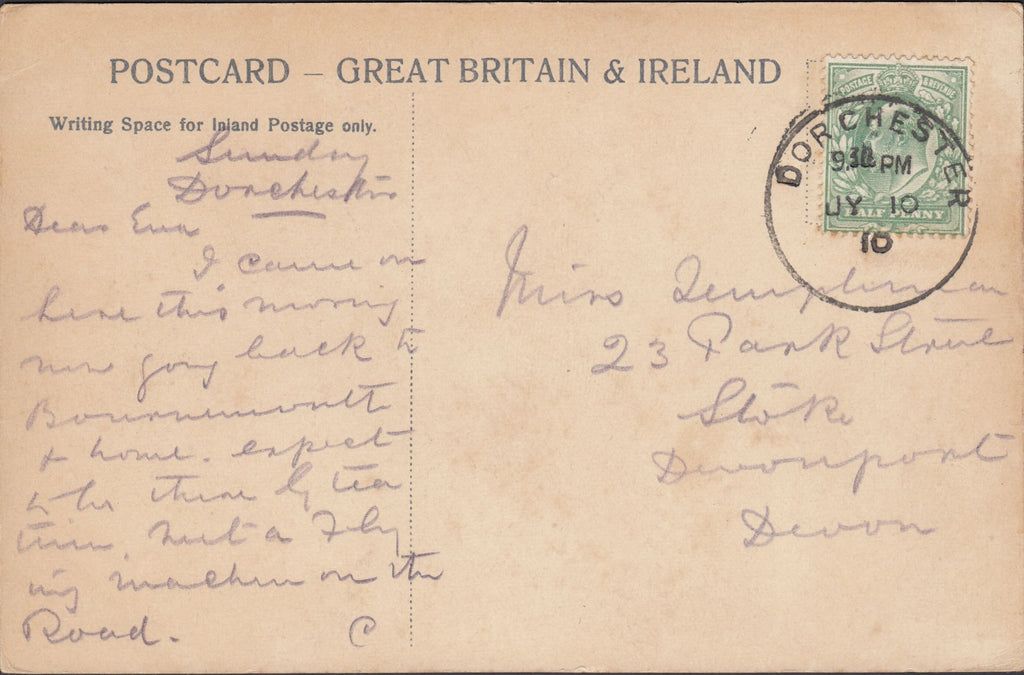 POSTCARD – GREAT BRITAIN & IRELAND
Writing Space for Inland Postage only.
Sunday
Dorchester
Dear Eva
I came on
here this morning
now going back to
Bournemouth
& home. expect
to be there by tea
time, met a Fly
ing machine on the
Road. C
POSTAGE REVENUE
HALF PENNY
DORCHESTER
9.30 PM
JY 10
10
Miss Templeman
23 Park Street
Stoke
Devonport
Devon